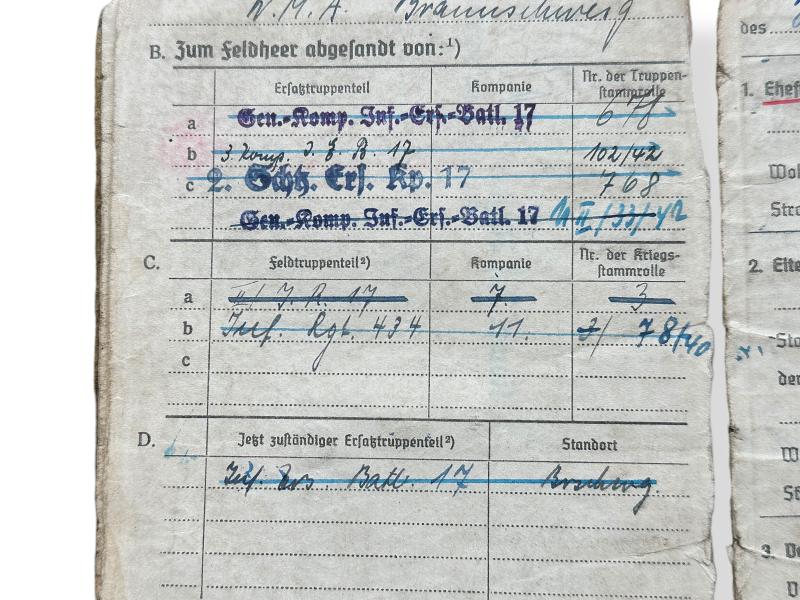 W.M.A. Braunschweig
B. Zum Feldheer abgesandt von:¹)
Ersatztruppenteil Kompanie Nr. der Truppen-stammrolle
a Gen.-Komp. Inf.-Ers.-Batl. 17 678
b 3. Komp. J. E. B. 17 102/42
c 2. Schtz. Ers. Kp. 17 768
Gen.-Komp. Inf.-Ers.-Batl. 17 II/33/42
C. Feldtruppenteil²) Kompanie Nr. der Kriegs-stammrolle
a II/ J.R. 17 7. 3
b Inf. Rgt. 434 11. 78/40
c
D. Jetzt zuständiger Ersatztruppenteil²) Standort
Inf. Ers. Batl. 17 Brschwg.
des
1. Ehef
Wol
Stra
2. Elte
Sta
der
W
St
3. V
V